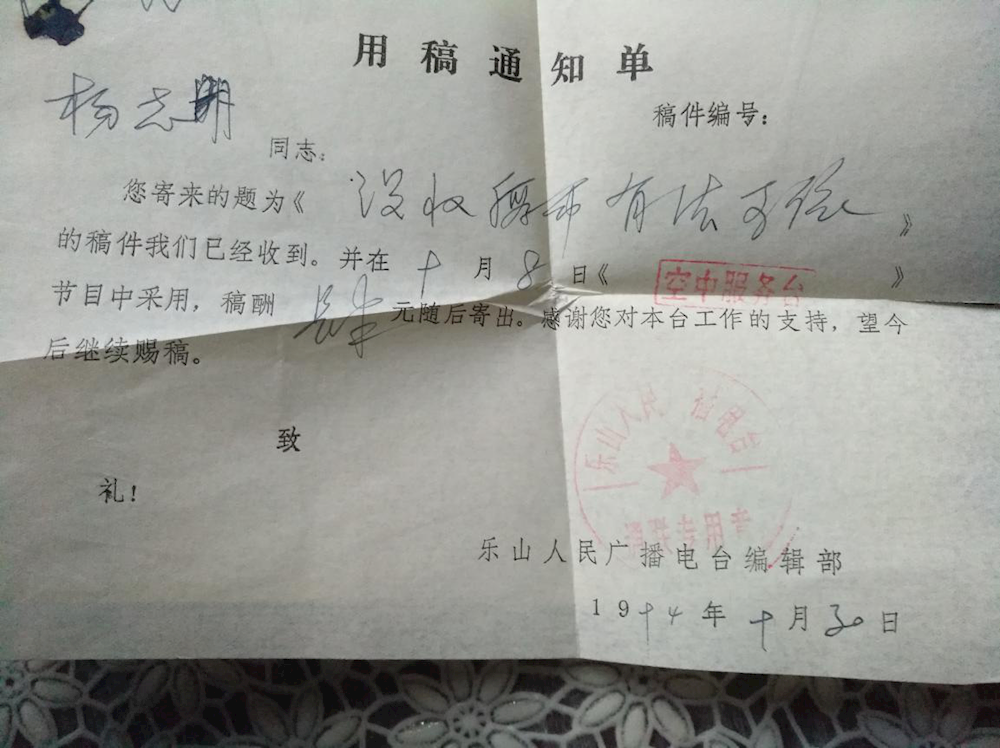 用稿通知单
稿件编号：
杨志明
同志：
您寄来的题为《没收 有法可依》
的稿件我们已经收到。并在十月8日《空中服务台》
节目中采用，稿酬 元随后寄出。感谢您对本台工作的支持，望今
后继续赐稿。
致
礼！
乐山人民 播电台
专用章
乐山人民广播电台编辑部
19 4年十月30日